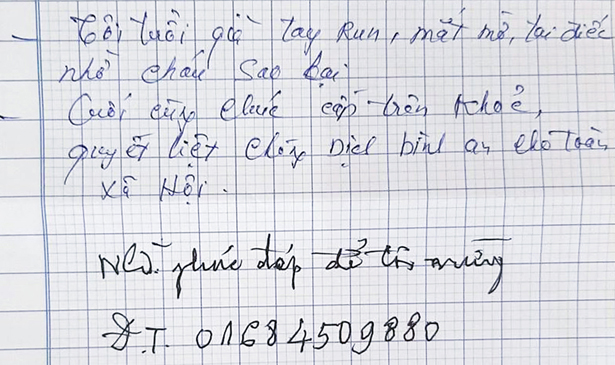 - Tôi tuổi già tay run, mắt mờ, tai điếc
nhờ cháu sao lại
- Cuối cùng chúc cấp trên khoẻ,
quyết liệt chống dịch bình an cho toàn
xã Hội.
phúc đáp để tôi mừng
Đ.T. 01684509880